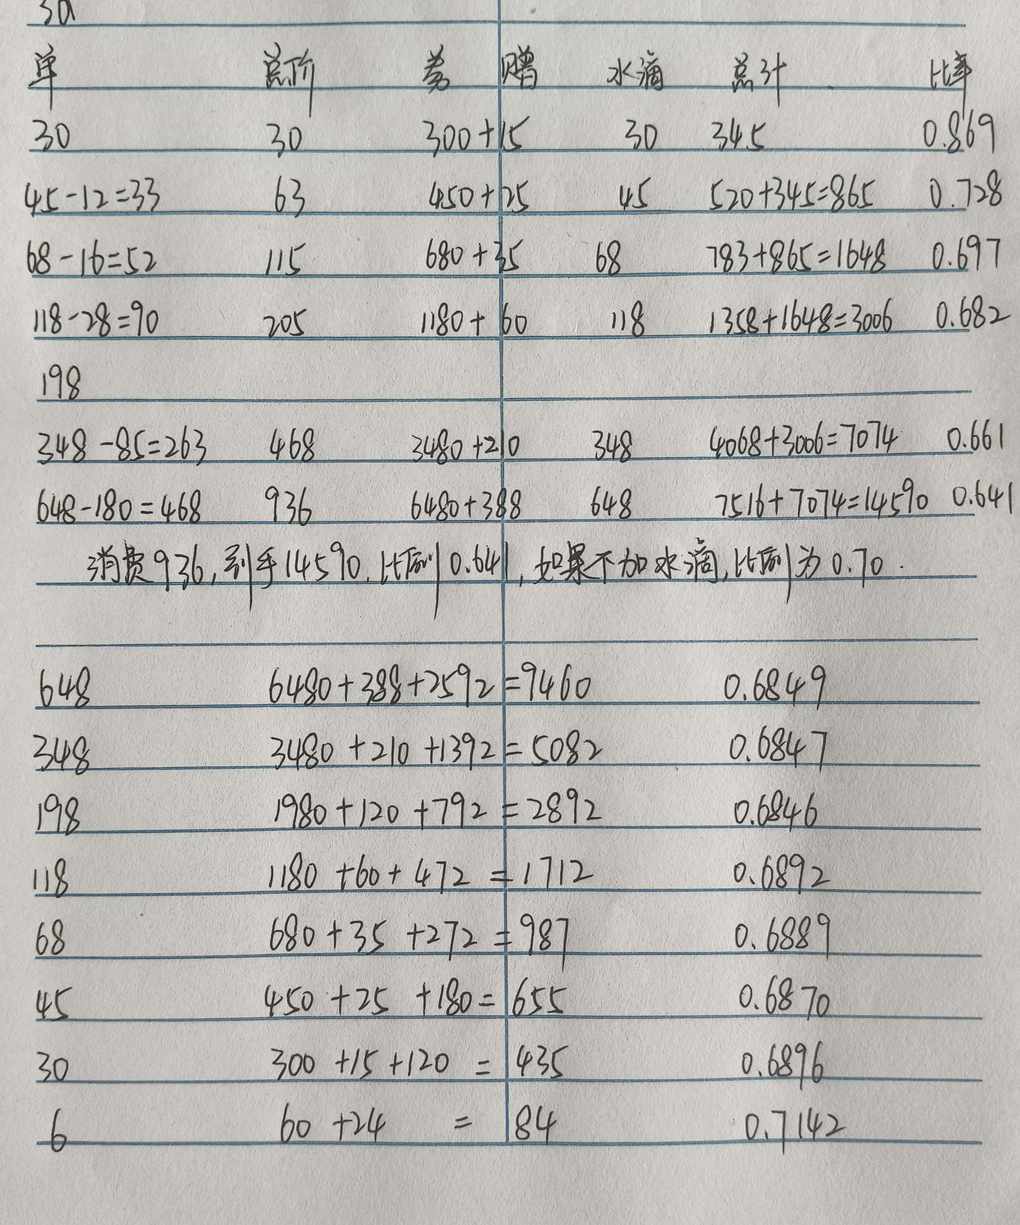 单 总价 券 赠 水滴 总计 比率
30 30 300+15 30 345 0.869
45-12=33 63 450+25 45 520+345=865 0.728
68-16=52 115 680+35 68 783+865=1648 0.697
118-28=90 205 1180+60 118 1358+1648=3006 0.682
198
348-85=263 468 3480+210 348 4068+3006=7074 0.661
648-180=468 936 6480+388 648 7516+7074=14590 0.641
消费936,到手14590,比例0.641,如果不加水滴,比例为0.70.
648 6480+388+2592=9460 0.6849
348 3480+210+1392=5082 0.6847
198 1980+120+792=2892 0.6846
118 1180+60+472=1712 0.6892
68 680+35+272=987 0.6889
45 450+25+180=655 0.6870
30 300+15+120=435 0.6896
6 60+24=84 0.7142